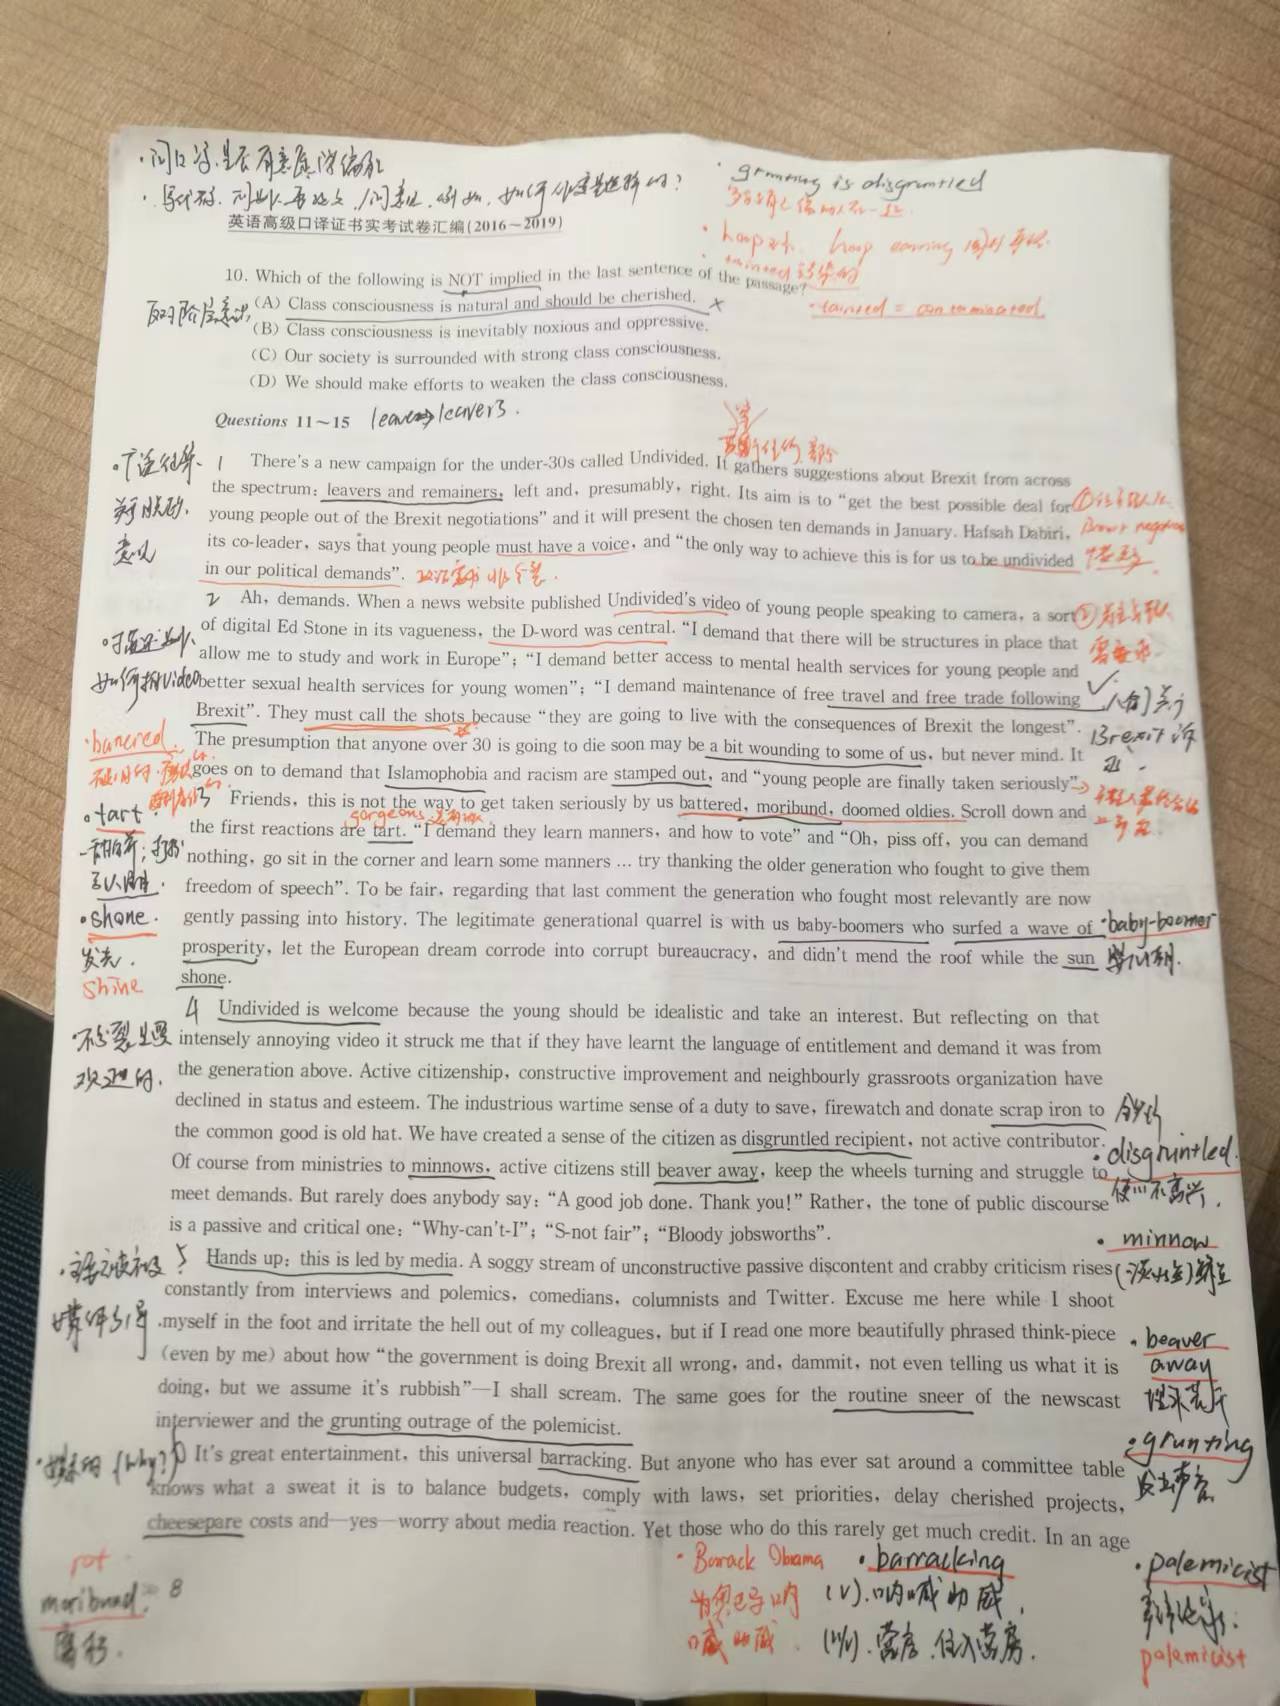 grunting is disgruntled
英语高级口译证书实考试卷汇编(2016～2019)
tainted = contaminated
10. Which of the following is NOT implied in the last sentence of the passage?
(A) Class consciousness is natural and should be cherished.
(B) Class consciousness is inevitably noxious and oppressive.
(C) Our society is surrounded with strong class consciousness.
(D) We should make efforts to weaken the class consciousness.
Questions 11～15 leave→leavers.
1 There's a new campaign for the under-30s called Undivided. It gathers suggestions about Brexit from across
the spectrum: leavers and remainers, left and, presumably, right. Its aim is to "get the best possible deal for
young people out of the Brexit negotiations" and it will present the chosen ten demands in January. Hafsah Dabiri,
its co-leader, says that young people must have a voice, and "the only way to achieve this is for us to be undivided
in our political demands".
2 Ah, demands. When a news website published Undivided's video of young people speaking to camera, a sort
of digital Ed Stone in its vagueness, the D-word was central. "I demand that there will be structures in place that
allow me to study and work in Europe"; "I demand better access to mental health services for young people and
better sexual health services for young women"; "I demand maintenance of free travel and free trade following
Brexit". They must call the shots because "they are going to live with the consequences of Brexit the longest".
The presumption that anyone over 30 is going to die soon may be a bit wounding to some of us, but never mind. It
goes on to demand that Islamophobia and racism are stamped out, and "young people are finally taken seriously".
3 Friends, this is not the way to get taken seriously by us battered, moribund, doomed oldies. Scroll down and
the first reactions are tart. "I demand they learn manners, and how to vote" and "Oh, piss off, you can demand
nothing, go sit in the corner and learn some manners … try thanking the older generation who fought to give them
freedom of speech". To be fair, regarding that last comment the generation who fought most relevantly are now
gently passing into history. The legitimate generational quarrel is with us baby-boomers who surfed a wave of
prosperity, let the European dream corrode into corrupt bureaucracy, and didn't mend the roof while the sun
shone.
·tart
·shone.
发光.
shine
·baby-boomer
4 Undivided is welcome because the young should be idealistic and take an interest. But reflecting on that
intensely annoying video it struck me that if they have learnt the language of entitlement and demand it was from
the generation above. Active citizenship, constructive improvement and neighbourly grassroots organization have
declined in status and esteem. The industrious wartime sense of a duty to save, firewatch and donate scrap iron to
the common good is old hat. We have created a sense of the citizen as disgruntled recipient, not active contributor.
Of course from ministries to minnows, active citizens still beaver away, keep the wheels turning and struggle to
meet demands. But rarely does anybody say: "A good job done. Thank you!" Rather, the tone of public discourse
is a passive and critical one: "Why-can't-I"; "S-not fair"; "Bloody jobsworths".
·disgruntled.
使…不高兴.
·minnow
5 Hands up: this is led by media. A soggy stream of unconstructive passive discontent and crabby criticism rises
constantly from interviews and polemics, comedians, columnists and Twitter. Excuse me here while I shoot
myself in the foot and irritate the hell out of my colleagues, but if I read one more beautifully phrased think-piece
(even by me) about how "the government is doing Brexit all wrong, and, dammit, not even telling us what it is
doing, but we assume it's rubbish"—I shall scream. The same goes for the routine sneer of the newscast
interviewer and the grunting outrage of the polemicist.
·beaver
away
埋头苦干
·grunting
6 It's great entertainment, this universal barracking. But anyone who has ever sat around a committee table
knows what a sweat it is to balance budgets, comply with laws, set priorities, delay cherished projects,
cheesepare costs and—yes—worry about media reaction. Yet those who do this rarely get much credit. In an age
·Barack Obama
为奥巴马呐
喊助威
·barracking
(v).呐喊助威,
(n).营房.住入营房.
·polemicist
polemicist
rot
moribund.
8